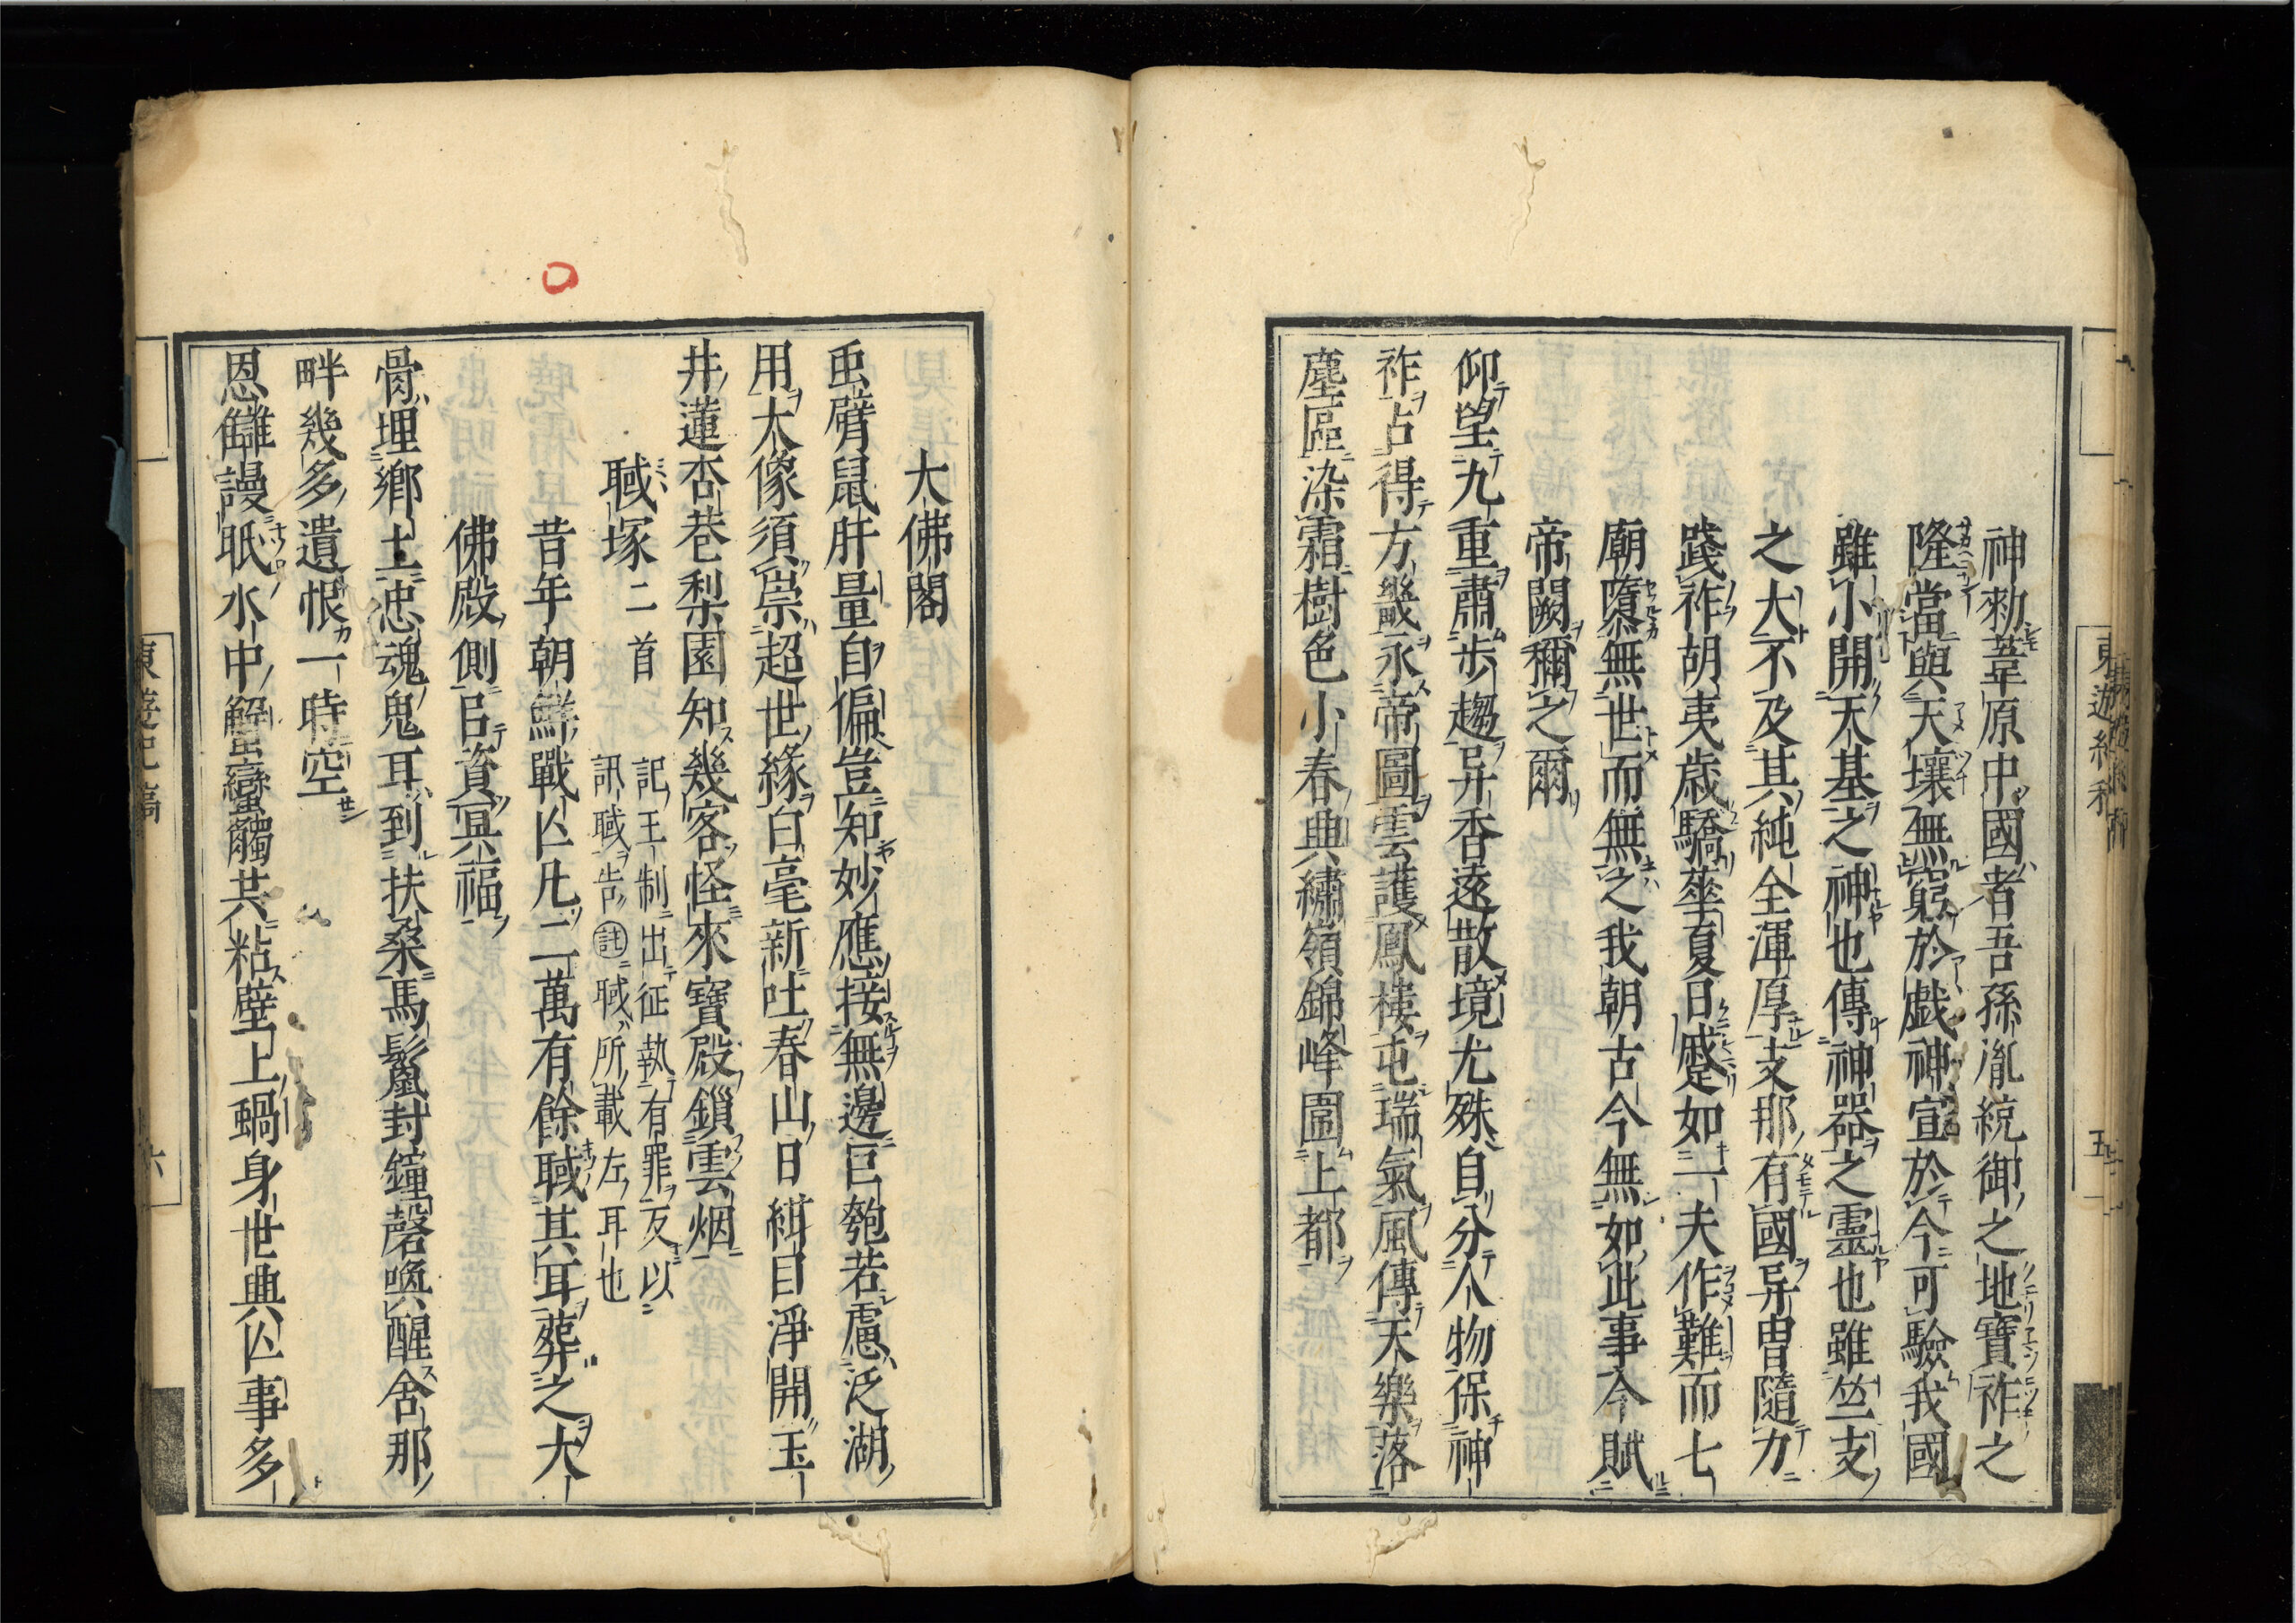 神勑葦原中國者吾孫胤統御之地寶祚之
隆當與天壤無窮於戯神宣於今可驗我國
雖小開天基之神也傳神器之靈也雖竺支
之大不及其純全渾厚支那有國异冑隨力
踐祚胡夷歳驕華夏日蹙如一夫作難而七
廟隳無世而無之我朝古今無如此事今賦
帝闕稱之爾
仰望九重肅歩趨异香遠散境尤殊自分人物保神
祚占得方畿永帝圖雲護鳳樓屯瑞氣風傳天樂落
塵區染霜樹色小春典繡嶺錦峰圍上都
東遊紀稿
五
大佛閣
䖝臂鼠肝量自偏豈知妙應接無邊巨匏若慮泛湖
用大像須崇超世緣白毫新吐春山日紺目淨開玉
井蓮杏巷梨園知幾客怪來寶殿鎖雲烟
聝塚二首
記王制出征執有罪反以
訊聝告註聝所載左耳也
昔年朝鮮戰亾凡二萬有餘聝其耳葬之大
佛殿側㠯資冥福
骨埋鄉土忠魂鬼耳到扶桑馬鬛封鐘磬喚醒舍那
畔幾多遺恨一時空
恩讎謾眂水中蟹蠻觸共粘壁上蝸身世興亾事多
東遊紀稿
六